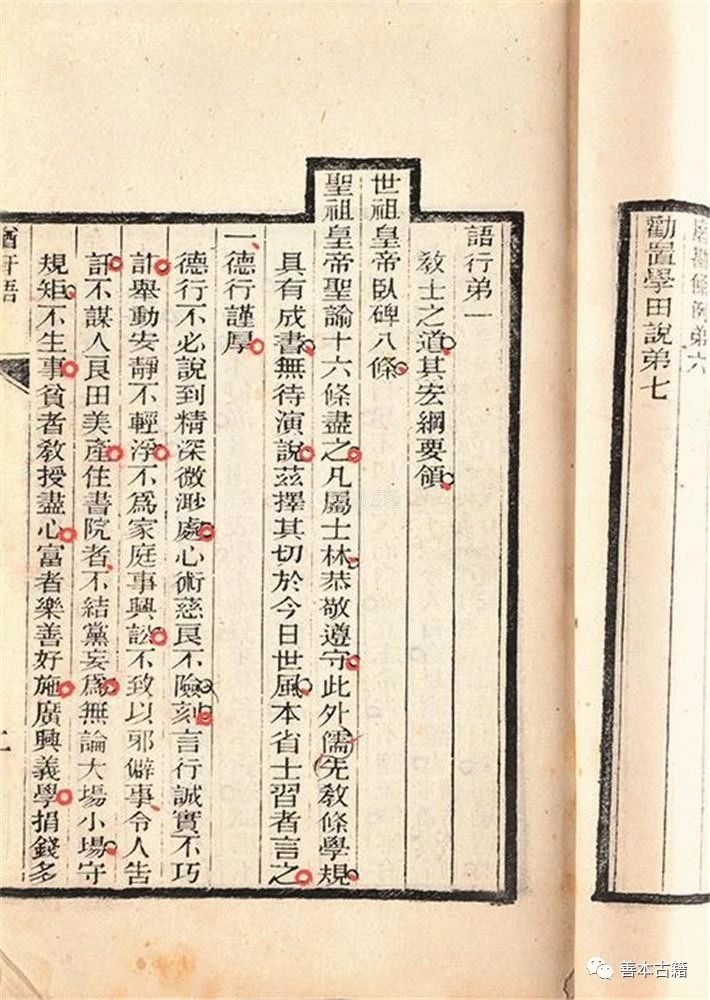 磨勘條例弟六
勸置學田說弟七
語行弟一
敎士之道其宏綱要領
世祖皇帝臥碑八條
聖祖皇帝聖諭十六條盡之凡屬士林恭敬遵守此外儒先敎條學規
具有成書無待演說茲擇其切於今日世風本省士習者言之
一德行謹厚
德行不必說到精深微渺處心術慈良不險刻言行誠實不巧
詐舉動安靜不輕浮不爲家庭事興訟不致以邪僻事令人告
訐不謀人良田美產住書院者不結黨妄爲無論大場小場守
規矩不生事貧者敎授盡心富者樂善好施廣興義學捐錢多
輶軒語
善本古籍